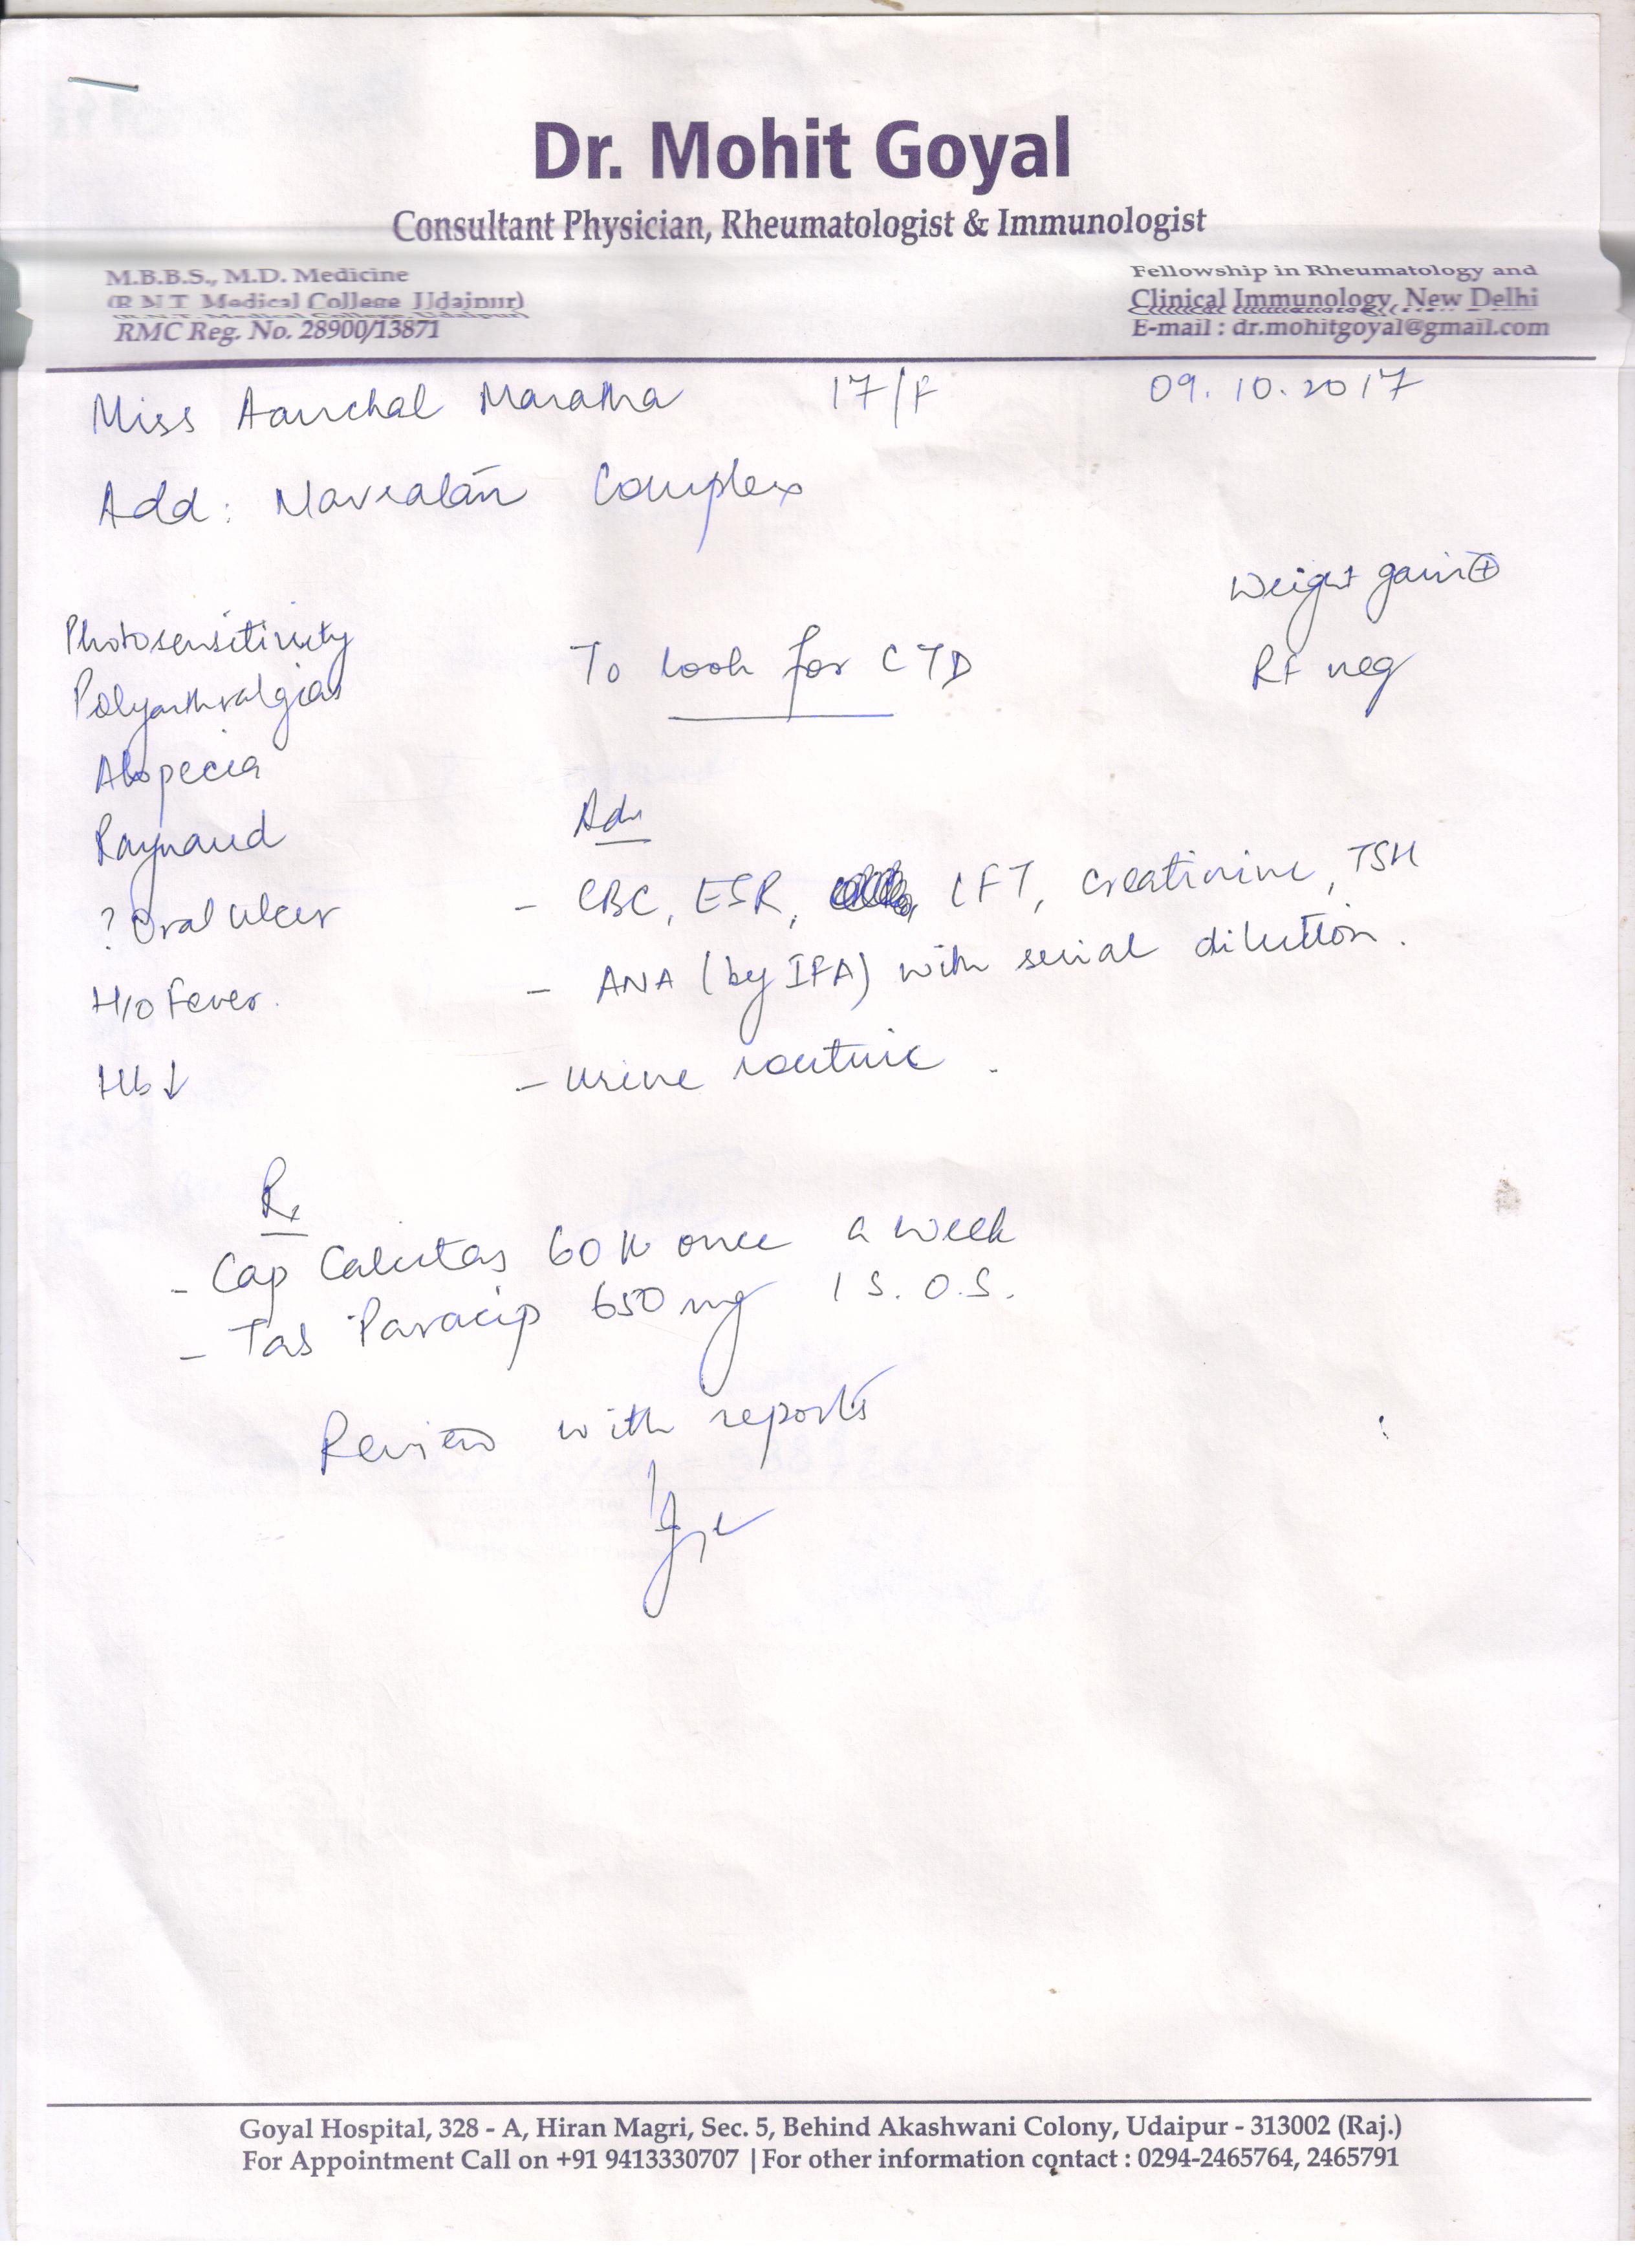 Dr. Mohit Goyal
Consultant Physician, Rheumatologist & Immunologist
M.B.B.S., M.D. Medicine
(R.N.T. Medical College, Udaipur)
RMC Reg. No. 28900/13871
Fellowship in Rheumatology and
Clinical Immunology, New Delhi
E-mail : dr.mohitgoyal@gmail.com
Miss Aanchal Maratha 17/F 09.10.2017
Add: Navratan Complex
Weight gain ⊕
RF neg
Photosensitivity
Polyarthralgias
Alopecia
Raynaud
? Oral ulcer
H/o Fever.
Hb↓
To look for CTD
Adv
- CBC, ESR, LFT, creatinine, TSH
- ANA (by IFA) with serial dilution.
- Urine routine.
Rx
- Cap Calcitas 60K once a week
- Tab Paracip 650 mg 1 S.O.S.
Review with reports
Goyal Hospital, 328 - A, Hiran Magri, Sec. 5, Behind Akashwani Colony, Udaipur - 313002 (Raj.)
For Appointment Call on +91 9413330707 | For other information contact : 0294-2465764, 2465791